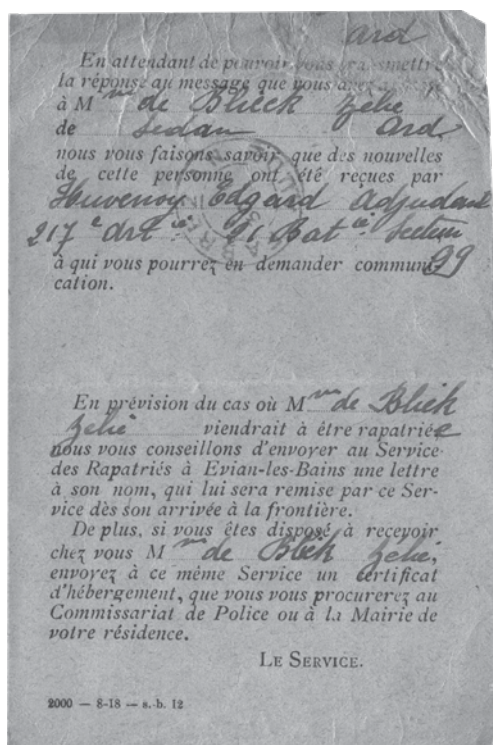 ard
En attendant de pouvoir vous transmettre
la réponse au message que vous avez
à Mme de Blieck Zélie
de Sedan Ard
nous vous faisons savoir que des nouvelles
de cette personne ont été reçues par
Huvenoy Edgard Adjudant
217e Art ie 21 Bat ie Secteur
à qui vous pourrez en demander communi- 99
cation.
En prévision du cas où Mme de Bliek
Zélie viendrait à être rapatriée
nous vous conseillons d'envoyer au Service
des Rapatriés à Evian-les-Bains une lettre
à son nom, qui lui sera remise par ce Ser-
vice dès son arrivée à la frontière.
De plus, si vous êtes disposé à recevoir
chez vous Mme de Bliek Zélie,
envoyez à ce même Service un certificat
d'hébergement, que vous vous procurerez au
Commissariat de Police ou à la Mairie de
votre résidence.
LE SERVICE.
2000 — 8-18 — s.-b. 12